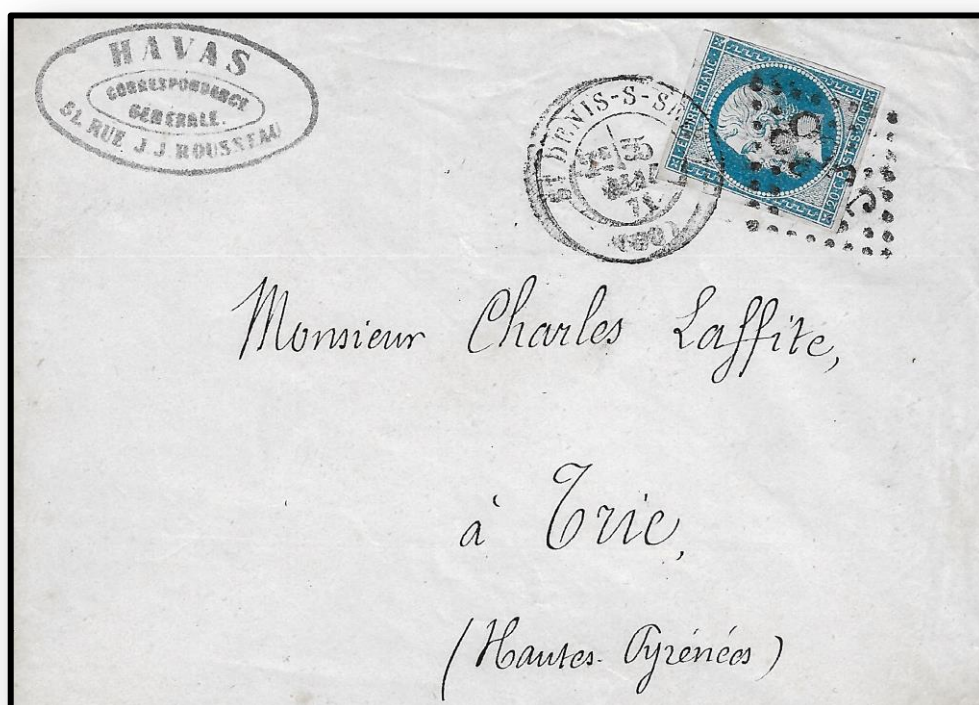 HAVAS
CORRESPONDANCE
GÉNÉRALE.
51, RUE J. J. ROUSSEAU
ST DENIS-S-SEINE
MAI
71
EMPIRE FRANC.
20·C·POSTES·20·C
Monsieur Charles Laffite,
à Trie,
(Hautes-Pyrénées)